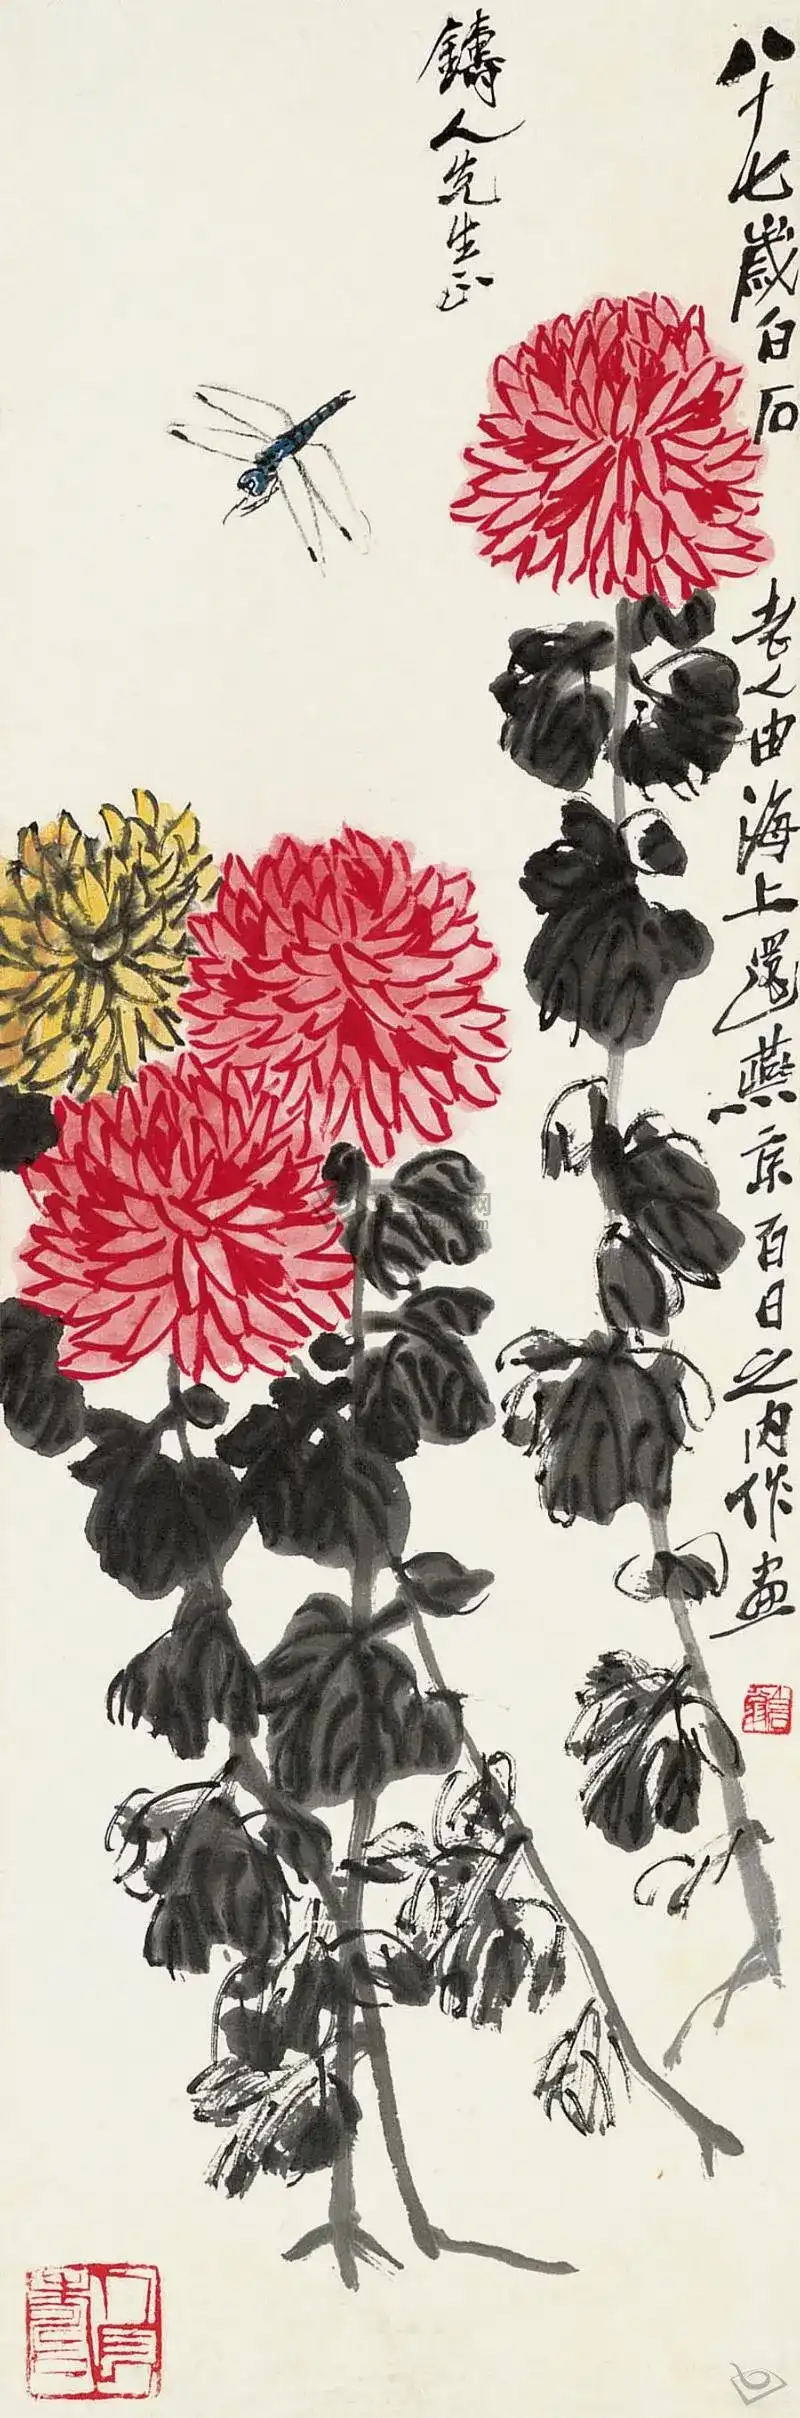 八十七歲白石老人由海上還燕京百日之內作畫
鑄人先生正